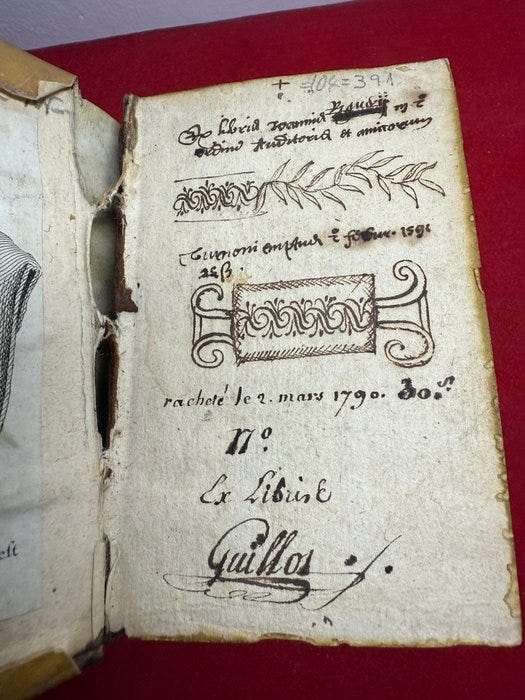 + =104=391
Ex libris Joannis
ordine Auditoris et amicorum
Turnoni emptus febur. 1591
racheté le 2. mars 1790. 30.s
N.o
Ex Libris
Guillos
est